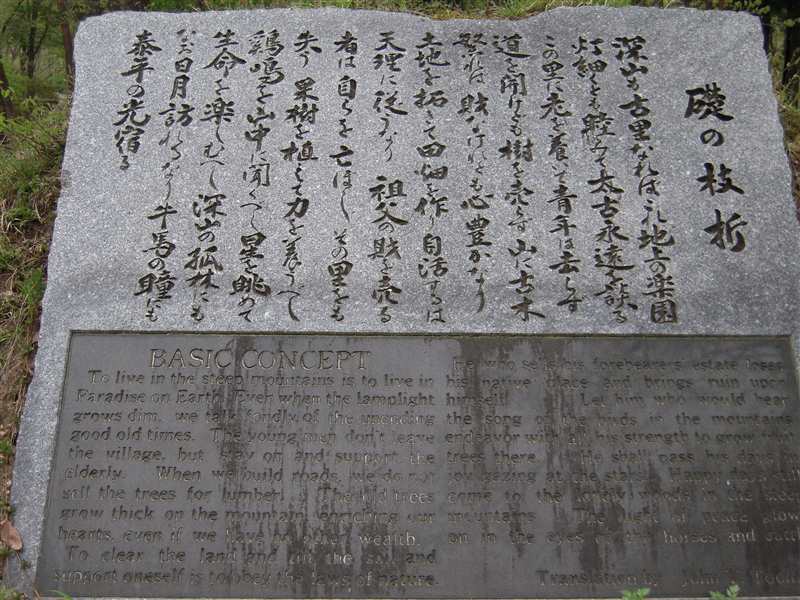 礎の枝折
深山も古里なればこれ地上の楽園
灯細くとも睦みて太古永遠を談る
この里に老を養いて青年は去らず
道を開けども樹を売らず山に古木
繁れば財なけれども心豊かなり
土地を拓きて田畑を作り自活するは
天理に従うなり 祖父の財を売る
者は自らを亡ぼし その里をも
失う 果樹を植えて力を養うべし
鶏鳴を山中に聞くべし 星を眺めて
生命を楽しむべし 深山の孤林にも
なお日月訪れるなり 牛馬の瞳にも
泰平の光宿る
BASIC CONCEPT
To live in the steep mountains is to live in
Paradise on Earth. Even when the lamplight
grows dim, we talk fondly of the unending
good old times. The young men don't leave
the village, but stay on and support the
elderly. When we build roads, we do not
sell the trees for lumber. The old trees
grow thick on the mountain, enriching our
hearts, even if we have no other wealth.
To clear the land and till the soil and
support oneself is to obey the laws of nature.
He who sells his forebearers estate loses
his native place and brings ruin upon
himself. Let him who would hear
the song of the birds in the mountains
endeavor with all his strength to grow fruit
trees there. He shall pass his days in
joy gazing at the stars. Happy days will
come to the lonely woods in the deep
mountains. The light of peace glows
on in the eyes of the horses and cattle.
Translation by John